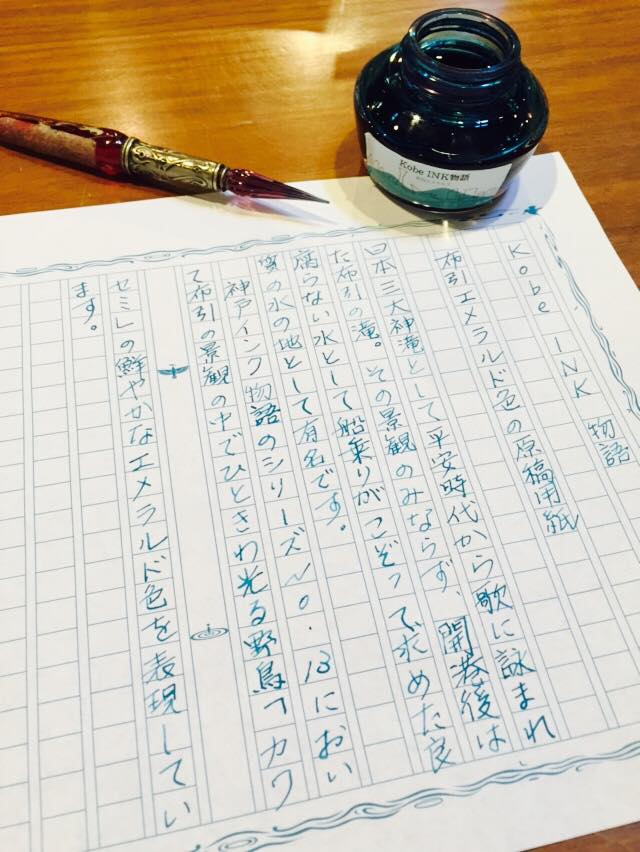 Kobe INK物語
Kobe INK 物語
布引エメラルド色の原稿用紙
日本三大神滝として平安時代から歌に詠まれ
た布引の滝。その景観のみならず、開港後は
腐らない水として船乗りがこぞって求めた良
質の水の地として有名です。
神戸インク物語のシリーズNo.13におい
て布引の景観の中でひときわ光る野鳥「カワ
セミ」の鮮やかなエメラルド色を表現してい
ます。